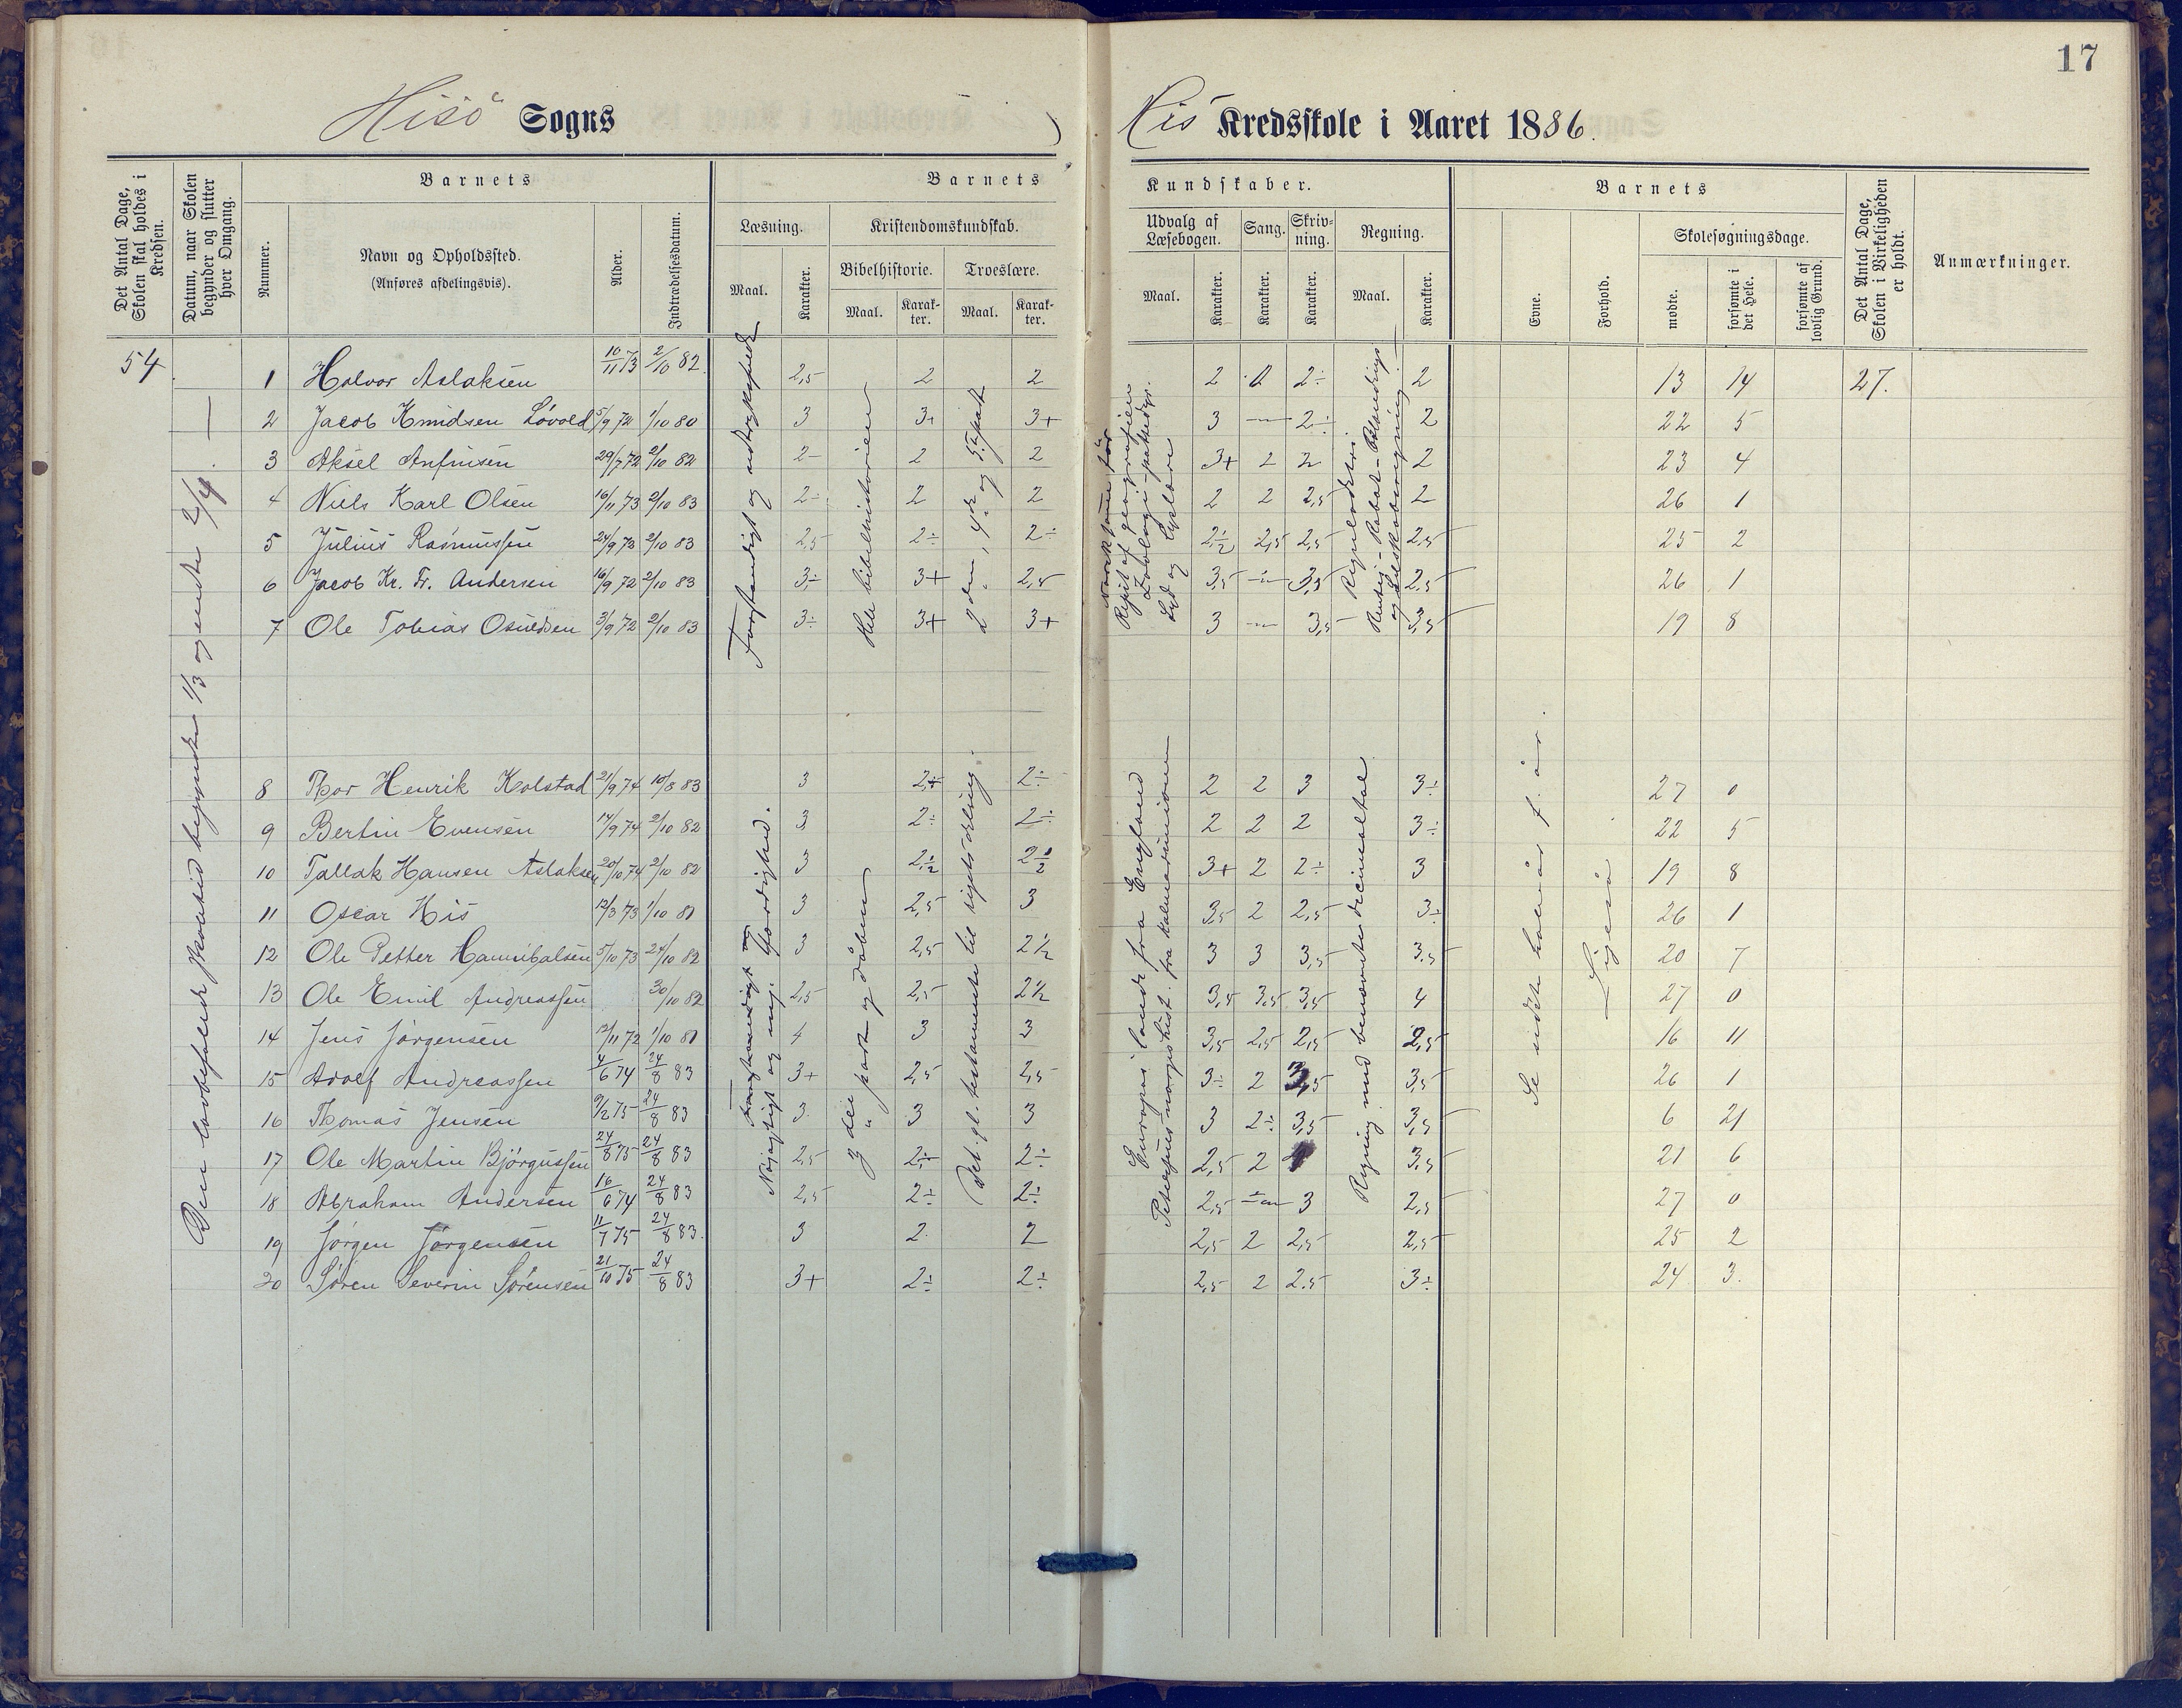 17
Hisö Sogns
His Kredsskole i Aaret 1886.
Det Antal Dage, Skolen skal holdes i Kredsen.
Datum, naar Skolen begynder og slutter hver Omgang.
Barnets
Nummer.
Navn og Opholdssted.
(Anføres afdelingsvis).
Alder.
Indtrædelsesdatum.
Barnets
Læsning.
Maal.
Karakter.
Kristendomskundskab.
Bibelhistorie.
Maal.
Karakter.
Troeslære.
Maal.
Karakter.
Kundskaber.
Udvalg af Læsebogen.
Maal.
Karakter.
Sang.
Karakter.
Skrivning.
Karakter.
Regning.
Maal.
Karakter.
Barnets
Evne.
Forhold.
Skolesøgningsdage.
mødte.
forsømte i det Hele.
forsømte af lovlig Grund.
Det Antal Dage, Skolen i Virkeligheden er holdt.
Anmærkninger.
54
Den lovbefalede skoletid begyndte 1/3 og endte 2/4
1 Halvor Aslaksen 10/11 73 2/10 82. 2,5 2 2 2 2 2÷ 2 13 14 27.
2 Jacob Knudsen Løvold 5/9 72 1/10 80 3 3+ 3+ 3 — 2÷ 2 22 5
3 Aksel Anfinsen 29/7 72 2/10 82 2- 2 2 3+ 2 2 2 23 4
4 Niels Karl Olsen 16/11 73 2/10 83 2÷ 2 2 2 2 2,5 2 26 1
5 Julius Rasmussen 24/9 73 2/10 83 2,5 2÷ 2÷ 2½ 2,5 2,5 2,5 25 2
6 Jacob Kr. Fr. Andersen 16/9 72 2/10 83 3÷ 3+ 2,5 3,5 — 3,5 2,5 26 1
7 Ole Tobias Osuldsen 3/9 72 2/10 83 3÷ 3+ 3+ 3 — 3,5 3,5 19 8
Forstandigt og udtryksfuldt
Hele bibelhistorien
2den, 4de og 5te part
Lyd og lyslære
8 Thor Henrik Kolstad 21/9 74 10/8 83 3 2÷ 2÷ 2 2 3 3÷ 27 0
9 Bertin Evensen 14/9 74 2/10 82 3 2÷ 2÷ 2 2 2 3÷ 22 5
10 Tallak Hansen Aslaksen 20/10 74 2/10 82 3 2½ 2½ 3+ 2 2÷ 3 19 8
11 Oscar His 12/3 73 1/10 81 3 2,5 3 3,5 2 2,5 3÷ 26 1
12 Ole Petter Hannibalsen 5/10 73 24/10 82 3 2,5 2½ 3 3 3,5 3,5 20 7
13 Ole Emil Andreassen 30/10 82 2,5 2,5 2½ 3,5 3,5 3,5 4 27 0
14 Jens Jörgensen 12/11 72 1/10 81 4 3 3 3,5 2,5 2,5 2,5 16 11
15 Adolf Andreassen 4/6 74 24/8 83 3+ 2,5 2,5 3÷ 2 3,5 3,5 26 1
16 Thomas Jensen 9/2 75 24/8 83 3 3 3 3 2÷ 3,5 3,5 6 21
17 Ole Martin Björgussen 24/8 75 24/8 83 2,5 2÷ 2÷ 2,5 2 3,5 21 6
18 Abraham Andersen 16/6 74 24/8 83 2,5 2÷ 2÷ 2,5 — 3 2,5 27 0
19 Jörgen Jörgensen 11/7 75 24/8 83. 3 2 2 2,5 2 2,5 2,5 25 2
20 Sören Severin Sörensen 21/10 75 24/8 83 3+ 2÷ 2÷ 2,5 2 2,5 3÷ 24 3
3die part og dåben
Det gl. testamente til rigets deling.
Europas lande fra England
Regning med benævnte decimaltal
Se sidste halvår f. år.
Ligeså